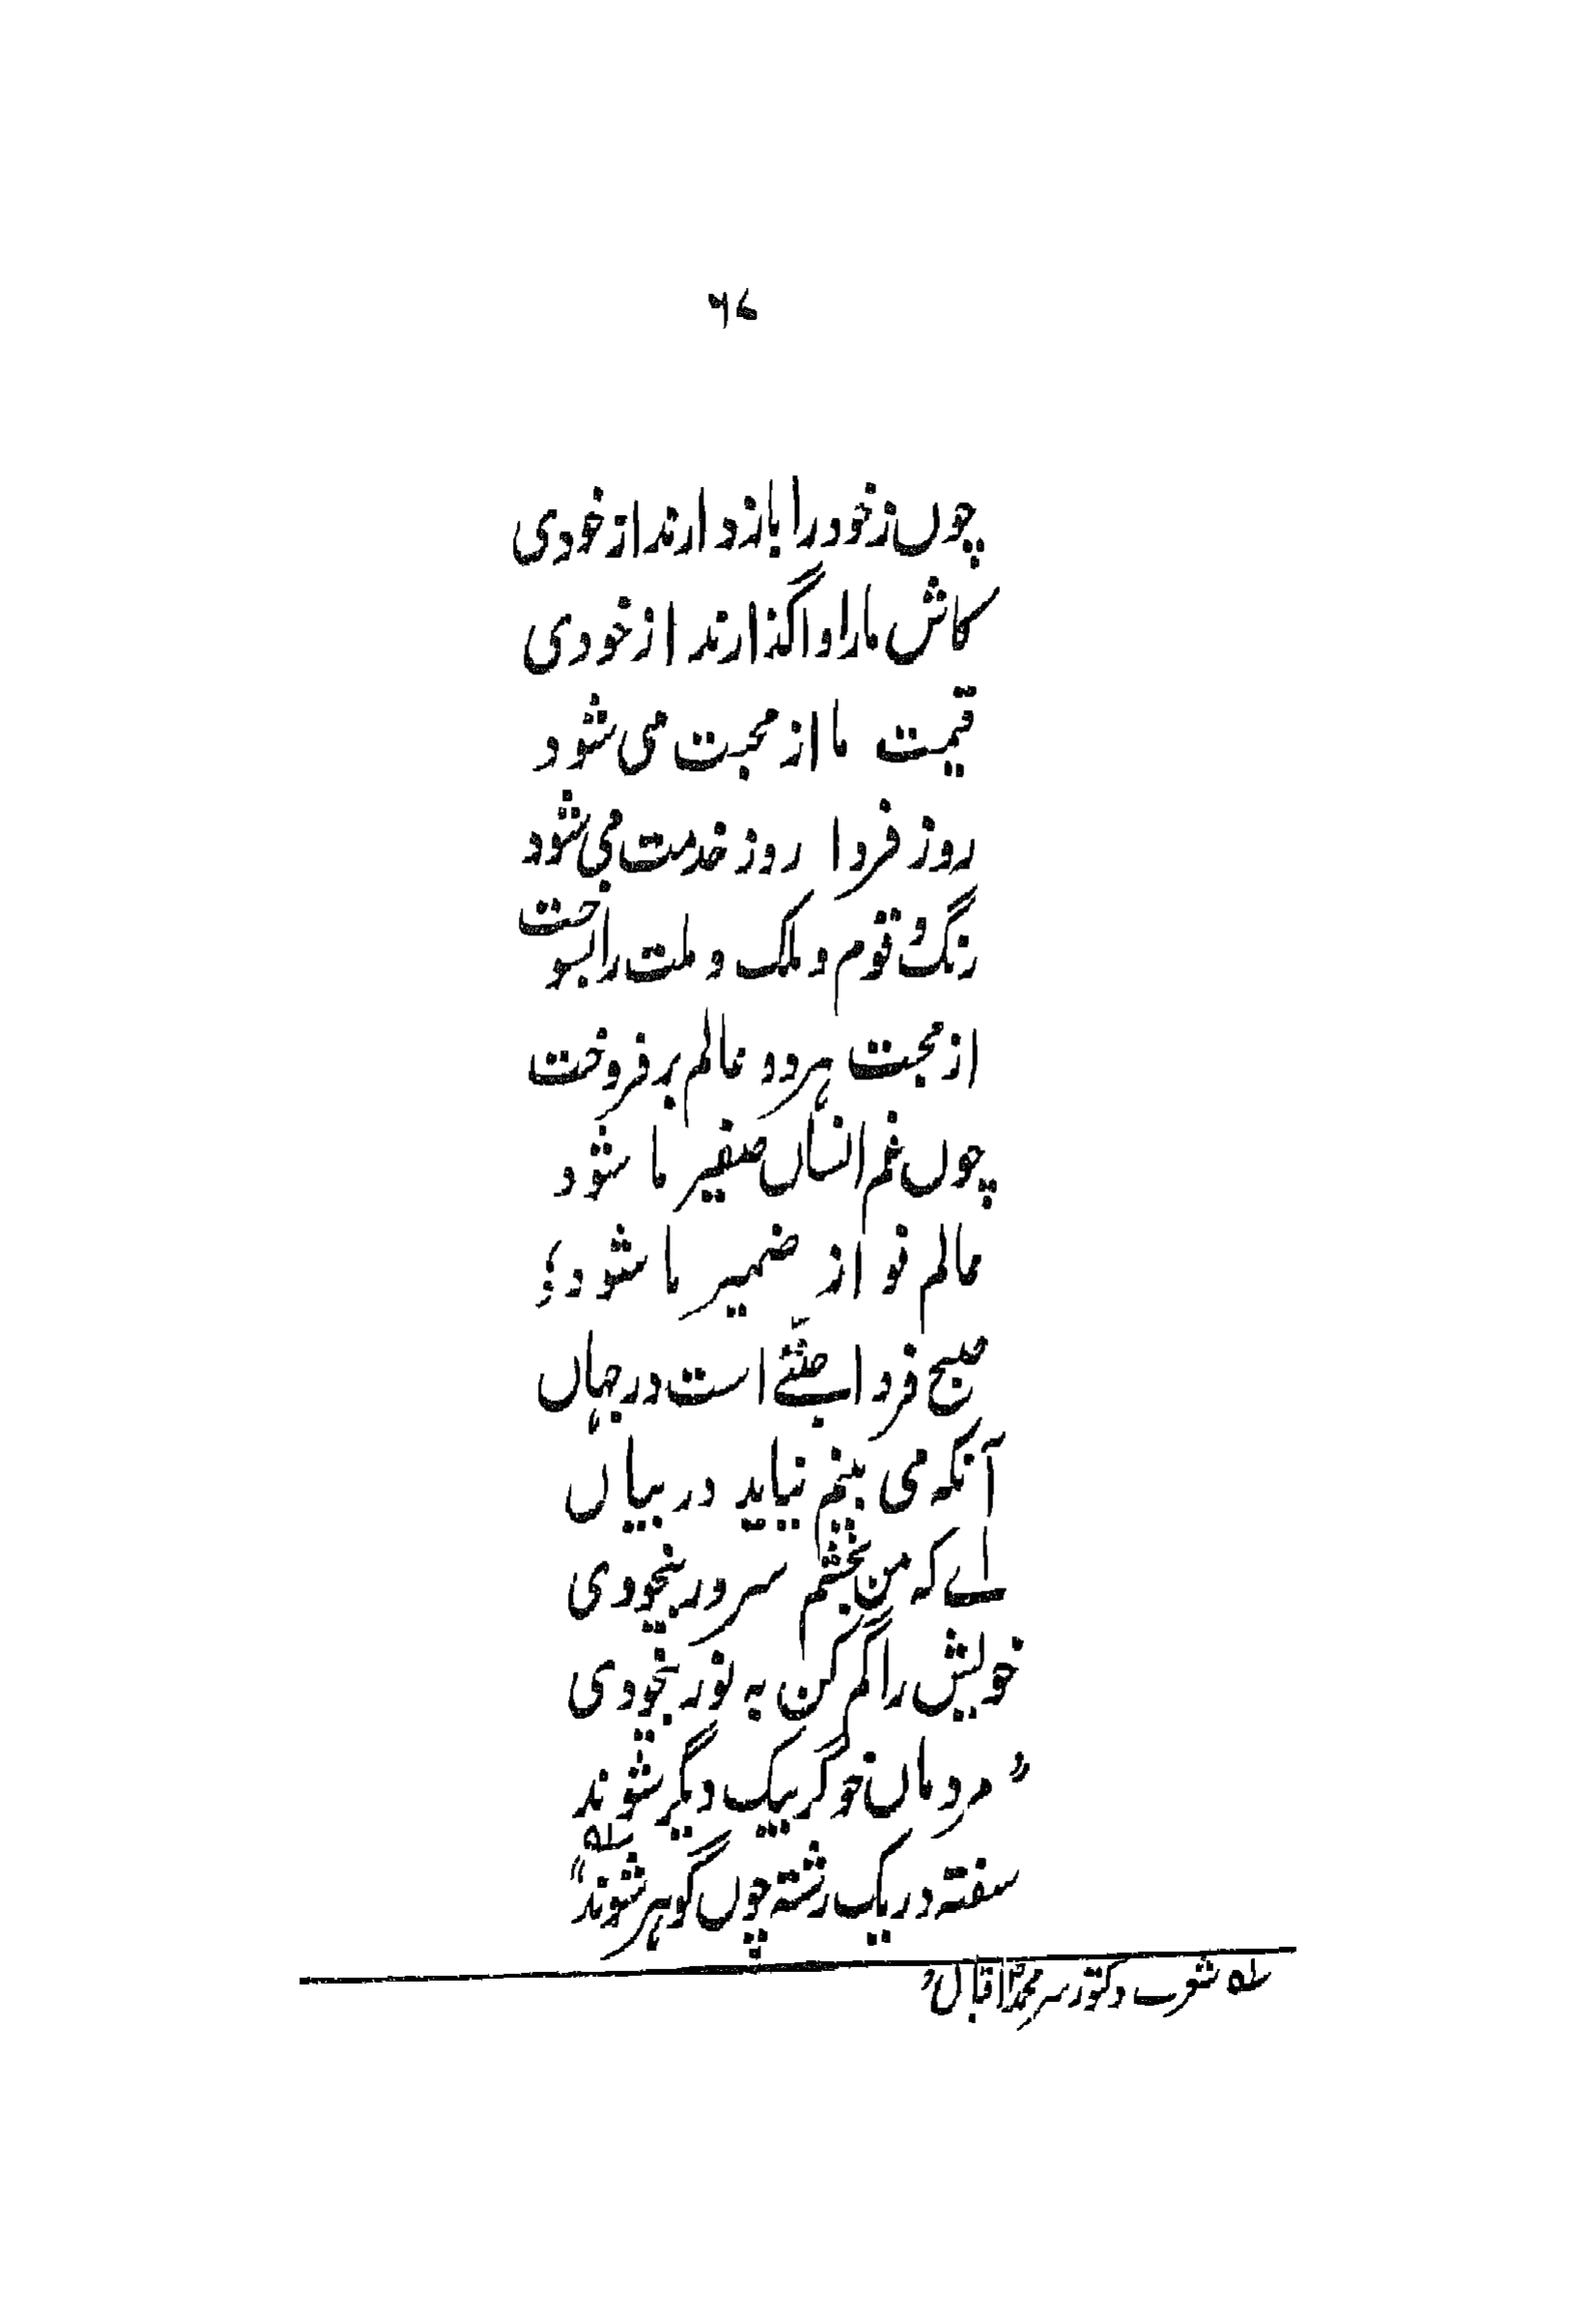 ۶۷
چوں زخود را باز دارند از خودی
کاش ما را واگذارند از خودی
قیمت ما از محبت می شود
روز فردا روز خدمت می شود
رنگ و قوم و ملک و ملت را بسوخت
از محبت ہر دو عالم بر فروخت
چوں غم انساں صفیر ما شود
عالم نو از ضمیر ما شود؛
صبح فردا جنّتے است در جہاں
آنکہ می بینم نیاید در بیاں
اے کہ من بخشم سرور بیخودی
خویش را گم کن بہ نور بیخودی
"مردماں خوگر بیک دیگر شوند
سفتہ در یک رشتہ چوں گوہر شوند" لہ
لہ شعرے دکتور سر محمد اقبالؒ